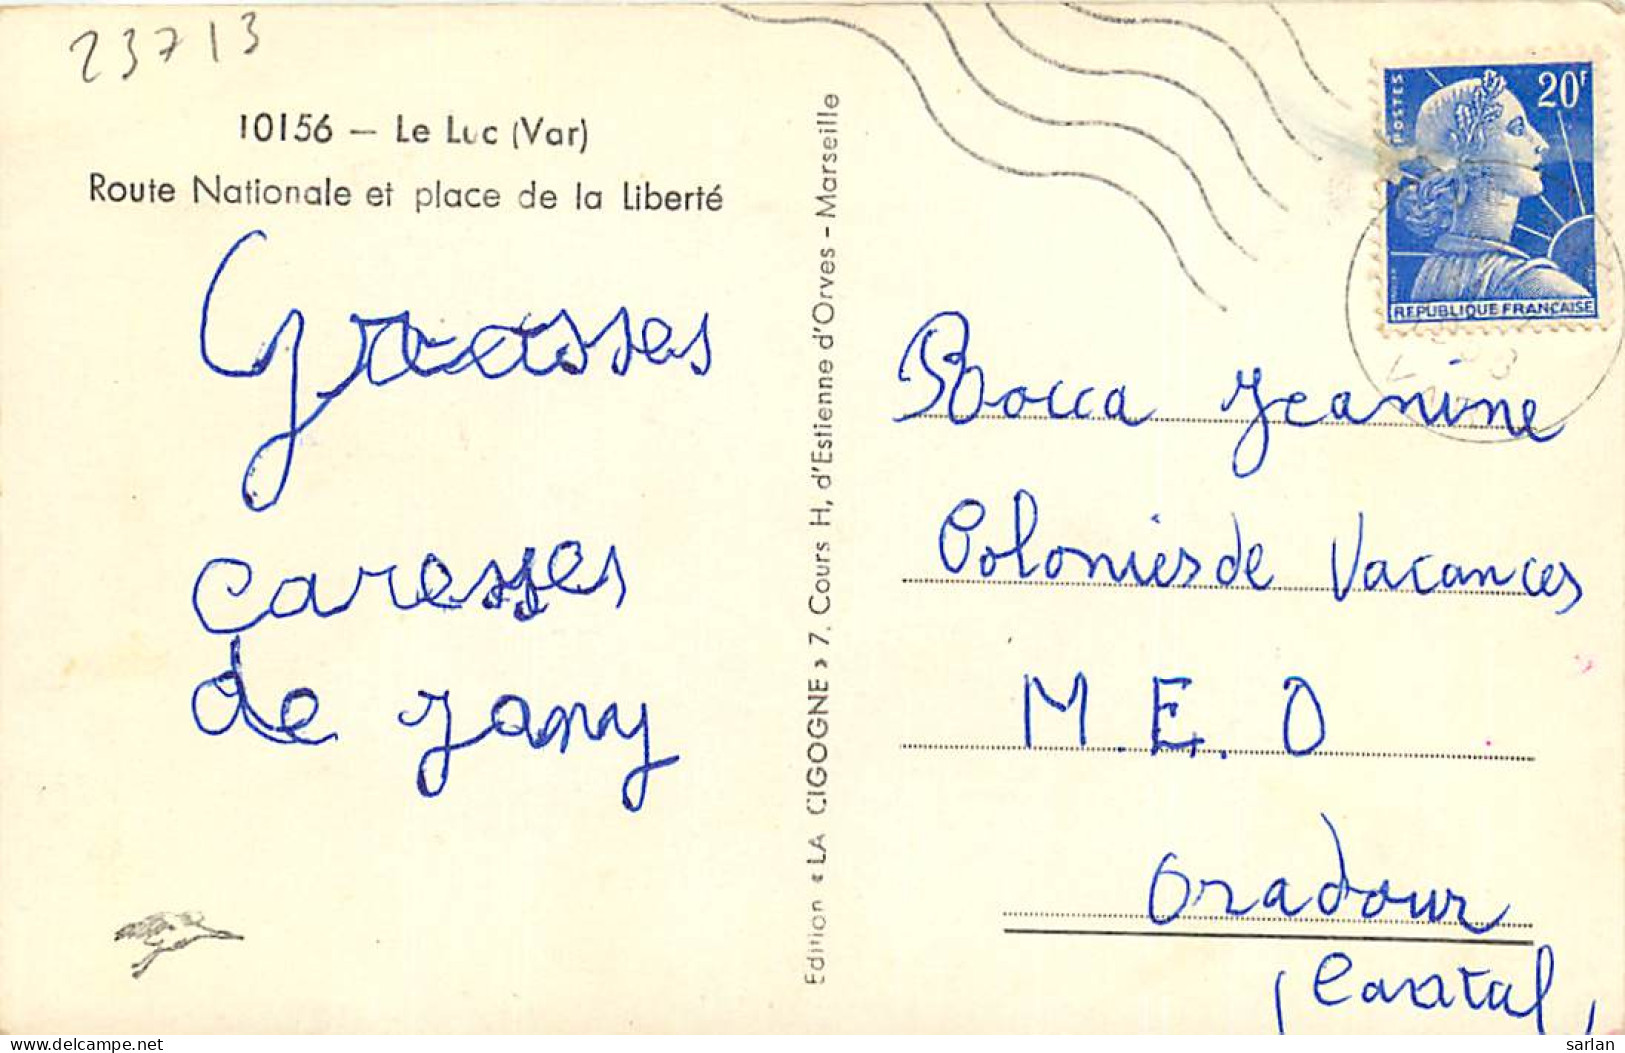 23713
10156 — Le Luc (Var)
Route Nationale et place de la Liberté
Grosses
caresses
de Jany
Edition « LA CIGOGNE » 7. Cours H, d'Estienne d'Orves - Marseille
POSTES
20F
REPUBLIQUE FRANÇAISE
Rocca Jeanine
Colonies de Vacances
M.E.O
Oradour
(Cantal)
delcampe.net
sarlan